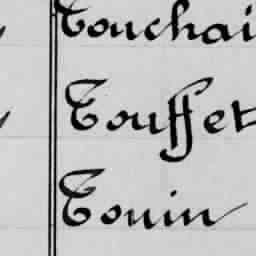 Touchai
Touffet
Touin